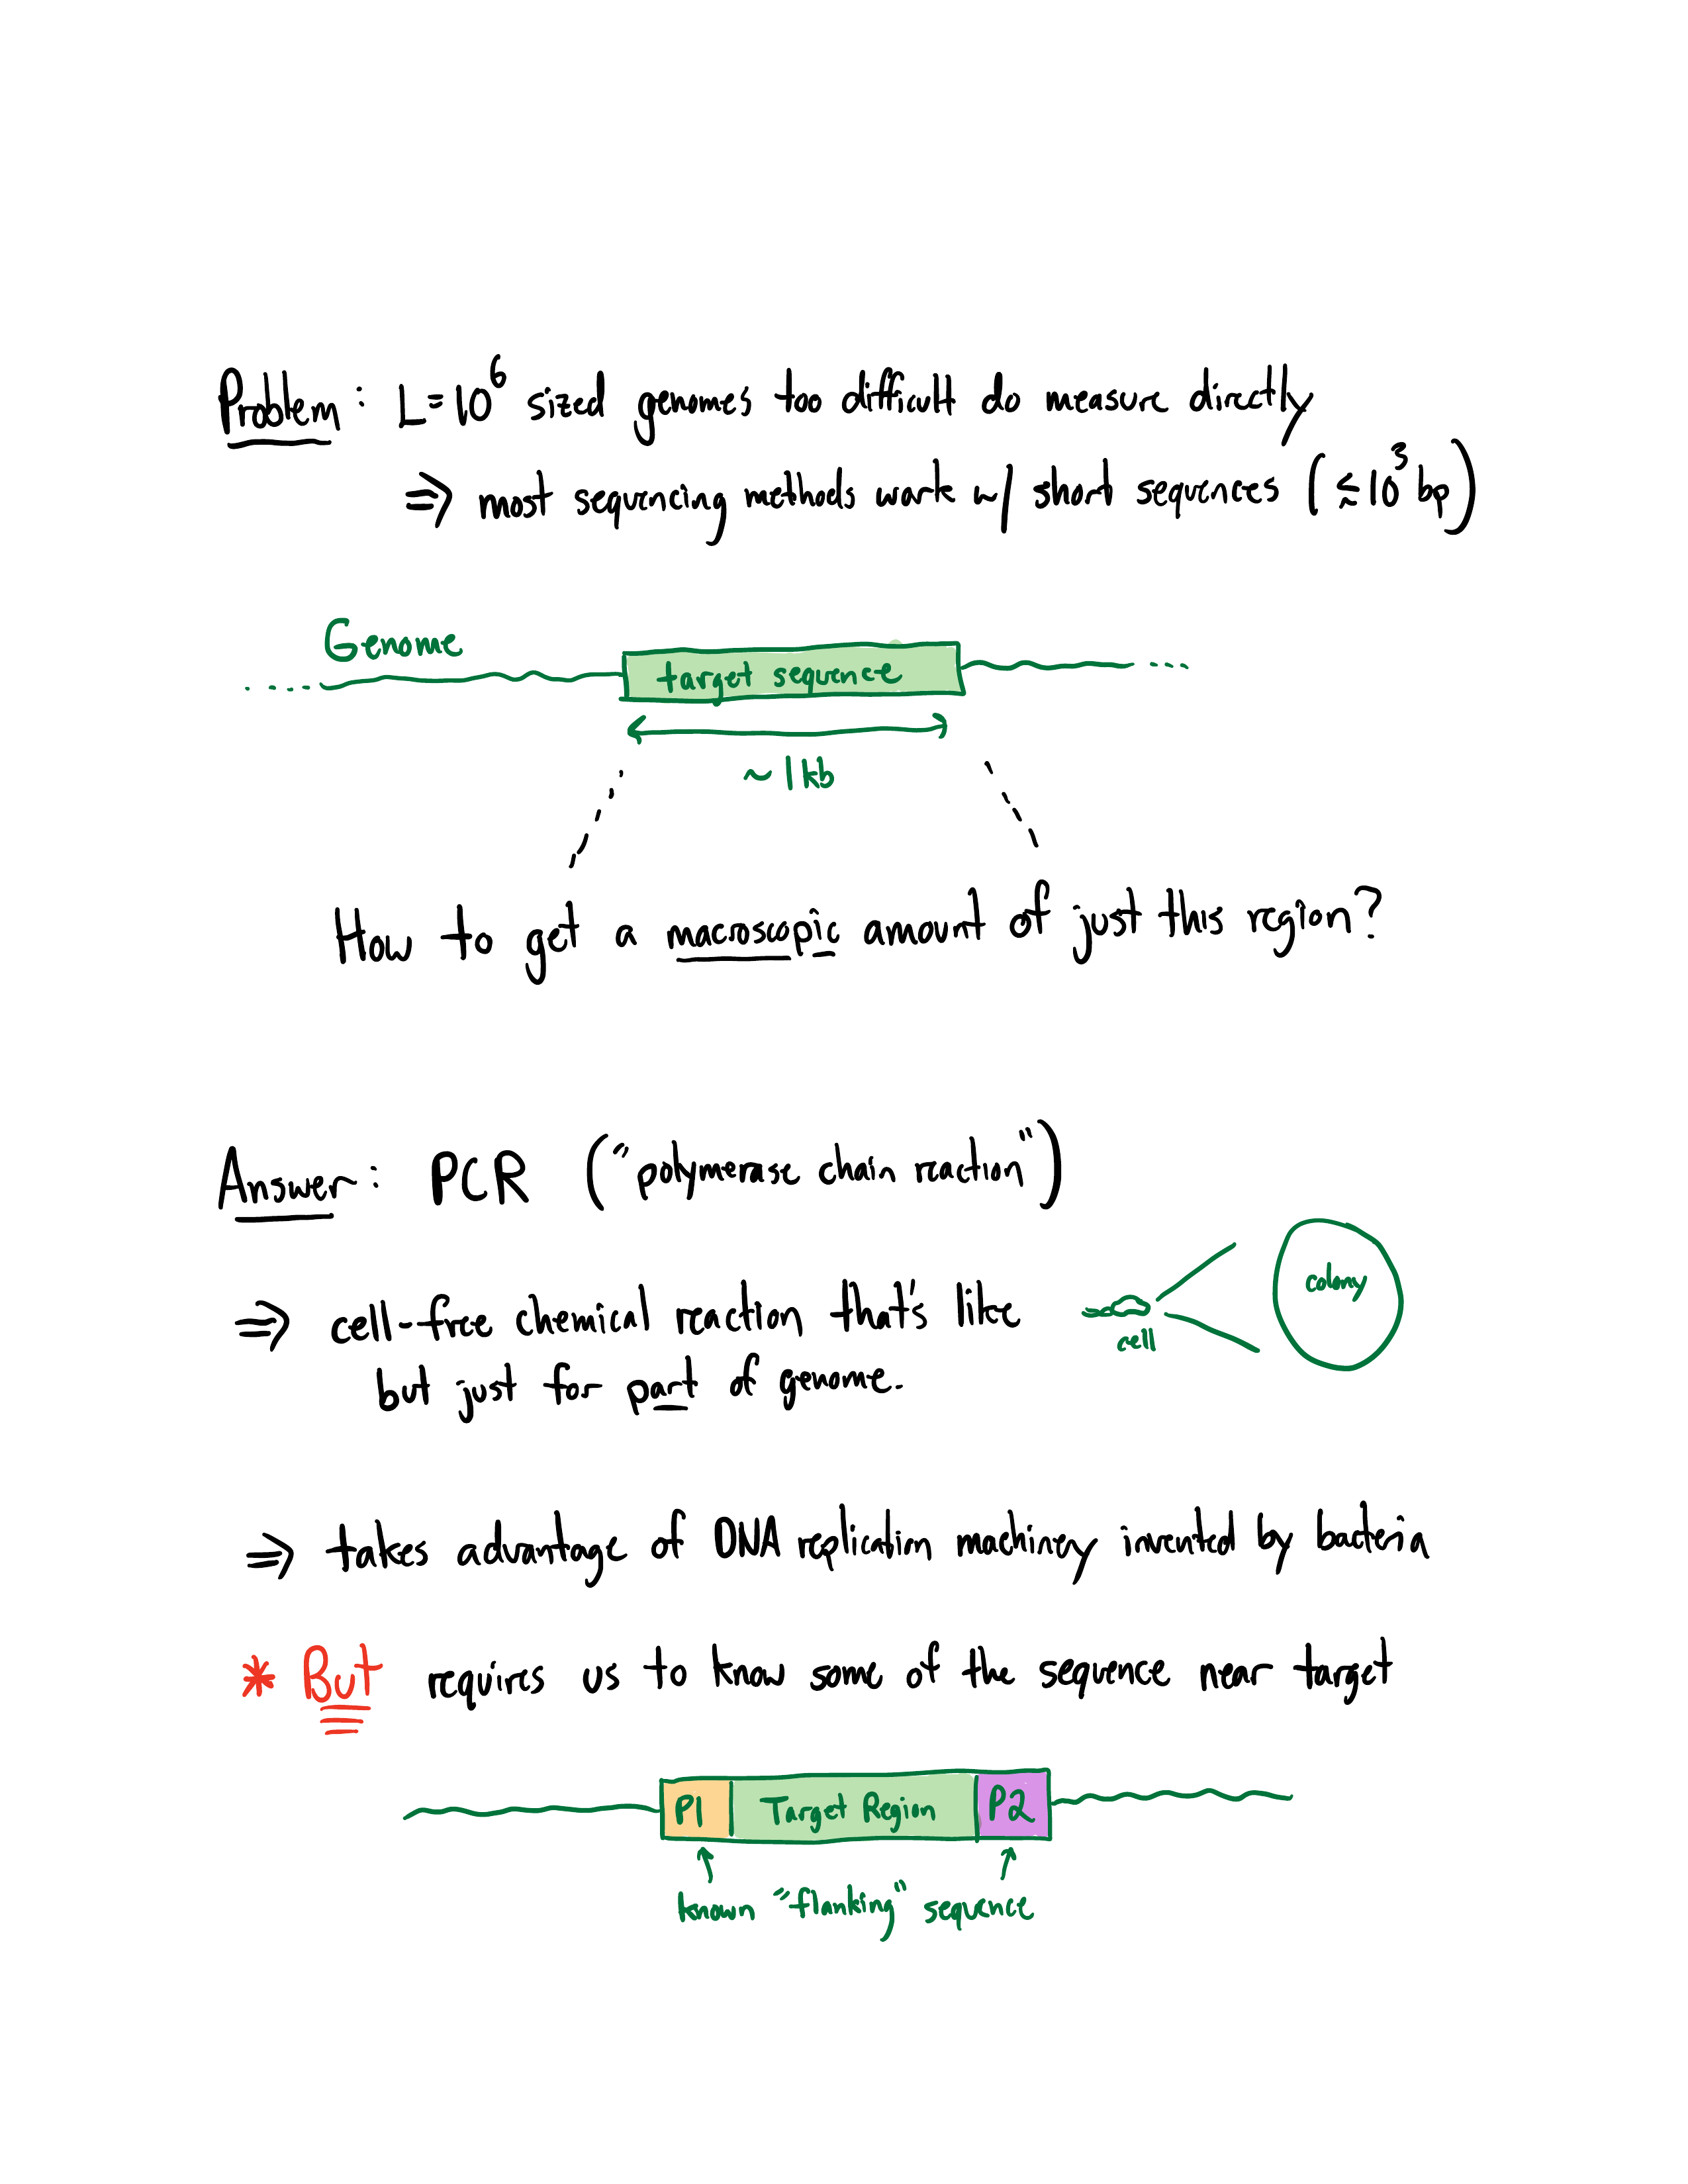 Problem: L=10⁶ sized genomes too difficult do measure directly
⇒ most sequencing methods work w/ short sequences (≲10³ bp)
Genome
target sequence
~1kb
How to get a macroscopic amount of just this region?
Answer: PCR ("polymerase chain reaction")
⇒ cell-free chemical reaction that's like
cell
colony
but just for part of genome.
⇒ takes advantage of DNA replication machinery invented by bacteria
* But requires us to know some of the sequence near target
P1 Target Region P2
known "flanking" sequence